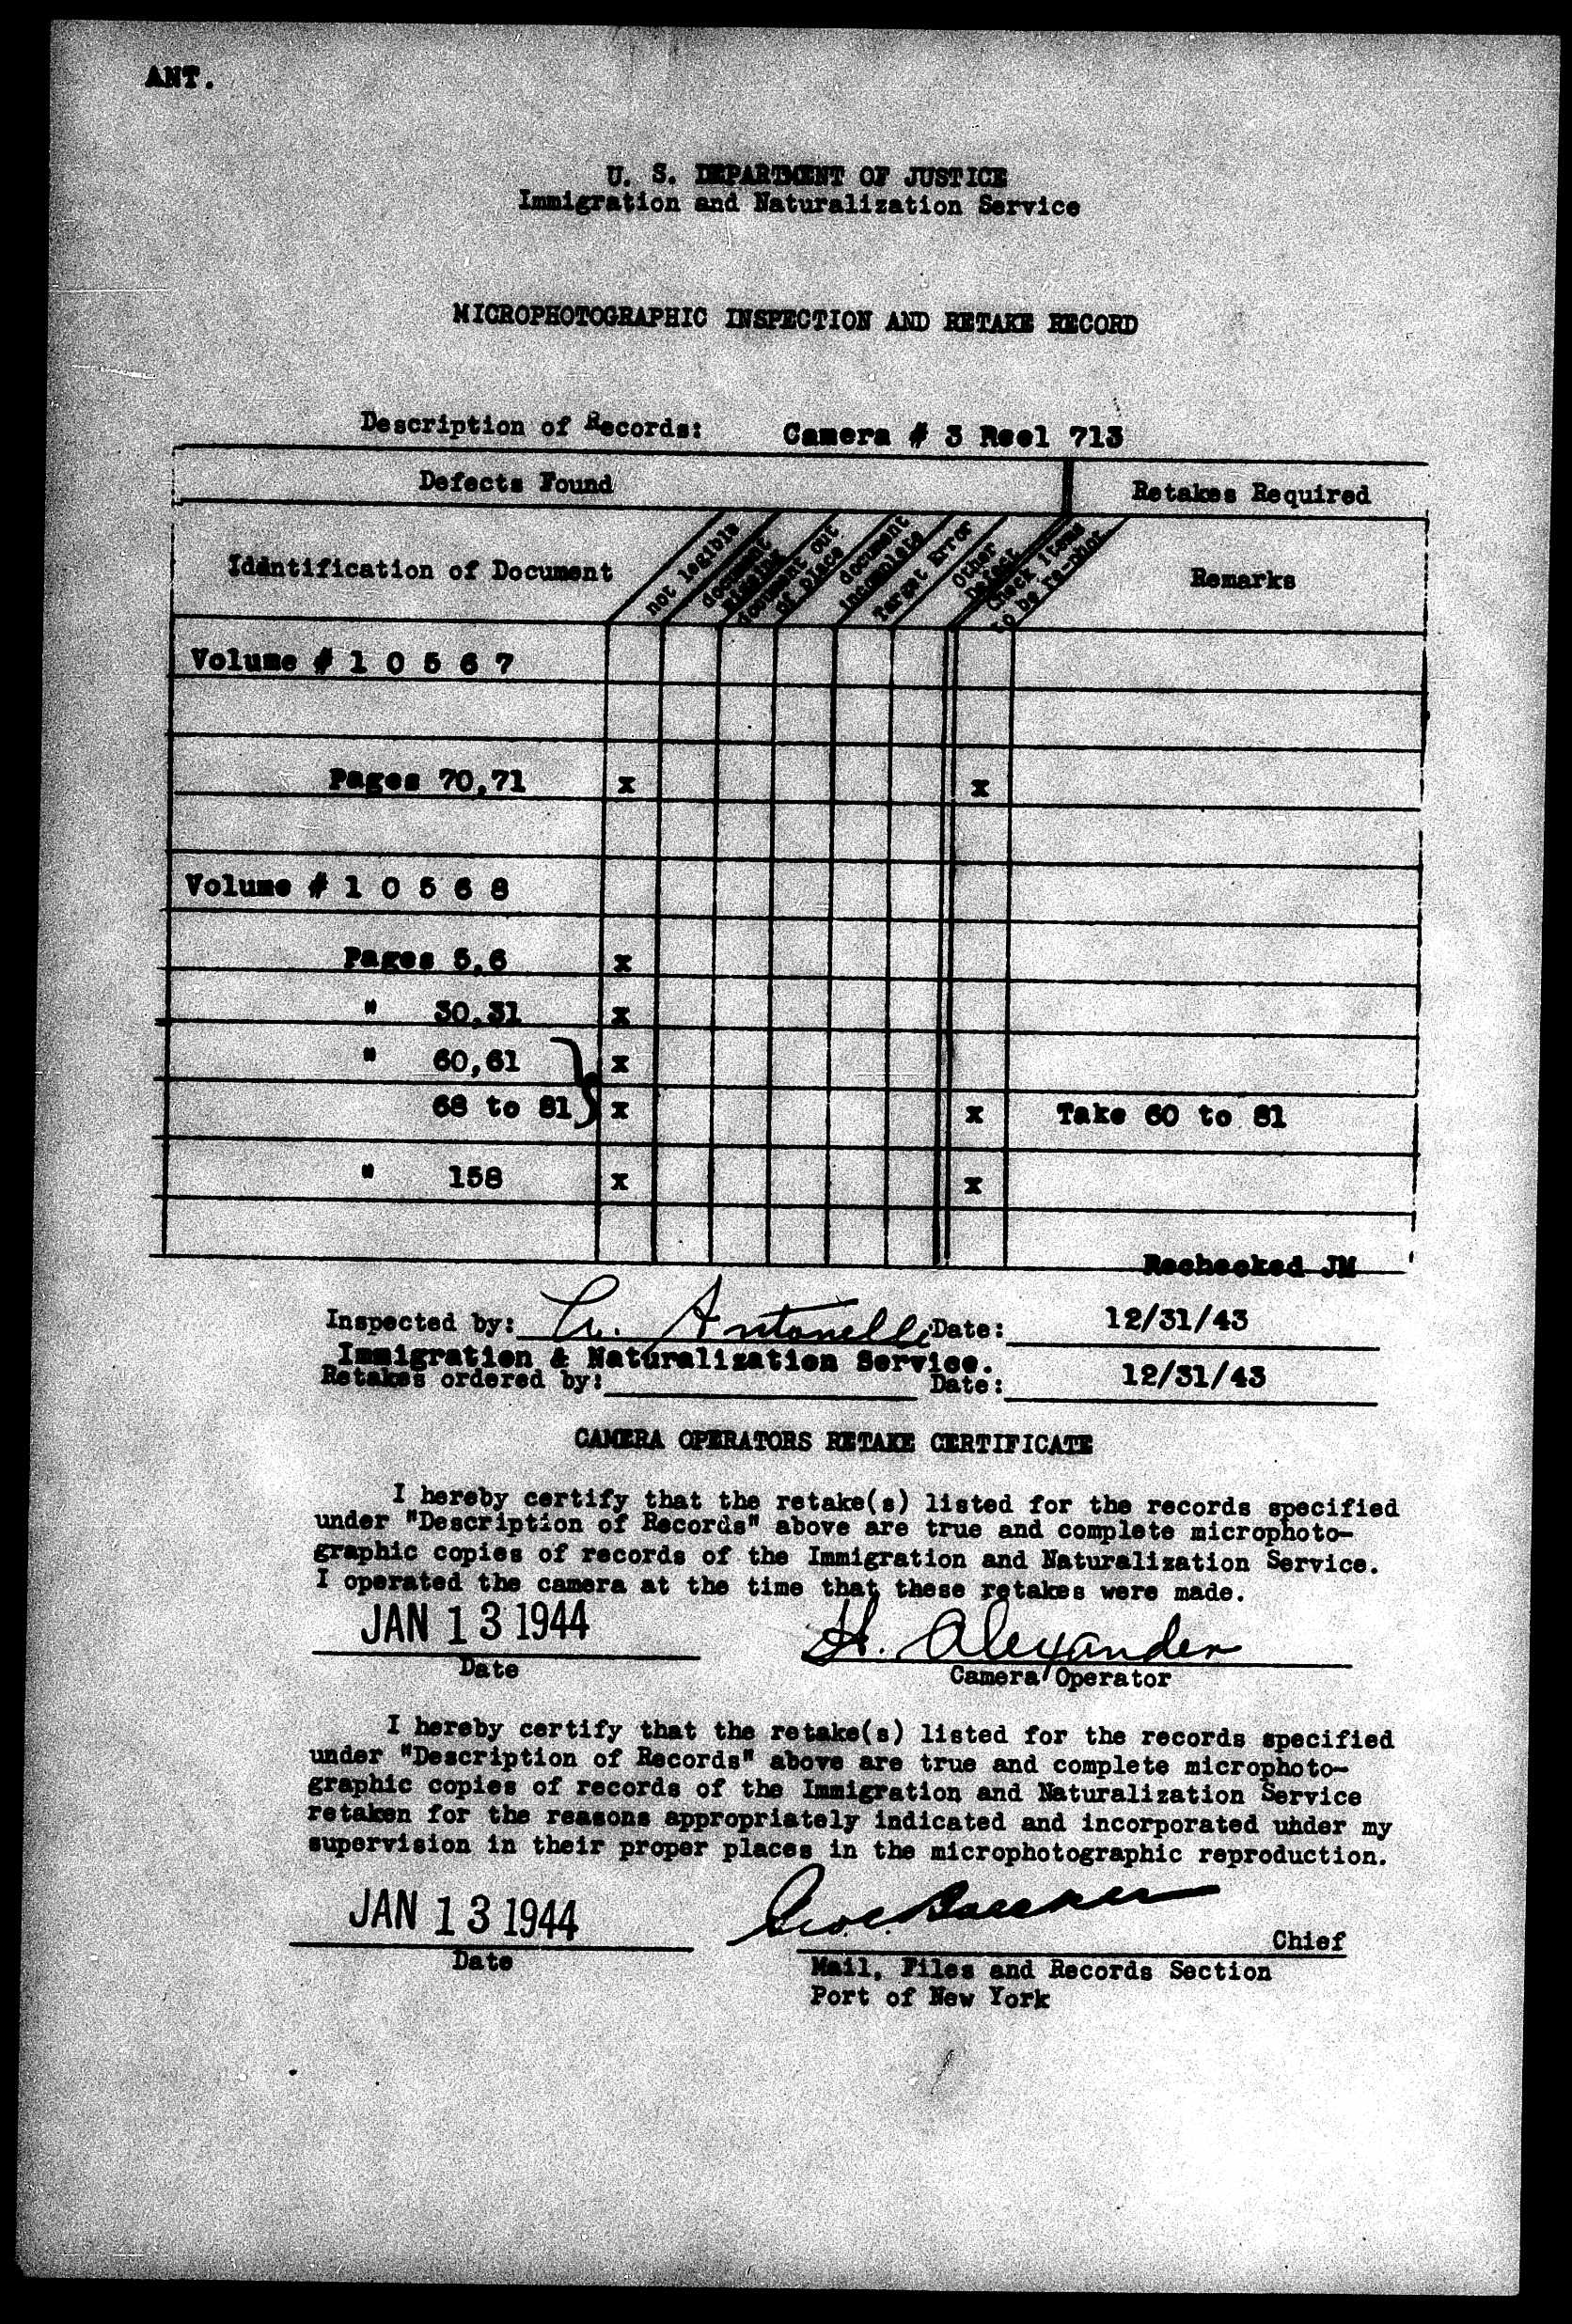 ANT.
U. S. DEPARTMENT OF JUSTICE
Immigration and Naturalization Service
MICROPHOTOGRAPHIC INSPECTION AND RETAKE RECORD
Description of Records: Camera # 3 Reel 713
Defects Found
Retakes Required
Identification of Document
not legible
document
missing
document out
of place
document
incomplete
Target Error
Other
Defect
Check items
to be re-phot
Remarks
Volume # 1 0 5 6 7
Pages 70,71 x x
Volume # 1 0 5 6 8
Pages 5,6 x
" 30,31 x
" 60,61 x
68 to 81 x x Take 60 to 81
" 158 x x
Rechecked JM
Inspected by: A. Antonelli Date: 12/31/43
Immigration & Naturalization Service.
Retakes ordered by: Date: 12/31/43
CAMERA OPERATORS RETAKE CERTIFICATE
I hereby certify that the retake(s) listed for the records specified
under "Description of Records" above are true and complete microphoto-
graphic copies of records of the Immigration and Naturalization Service.
I operated the camera at the time that these retakes were made.
JAN 13 1944 H. Alexander
Date Camera Operator
I hereby certify that the retake(s) listed for the records specified
under "Description of Records" above are true and complete microphoto-
graphic copies of records of the Immigration and Naturalization Service
retaken for the reasons appropriately indicated and incorporated under my
supervision in their proper places in the microphotographic reproduction.
JAN 13 1944
Chief
Date
Mail, Files and Records Section
Port of New York